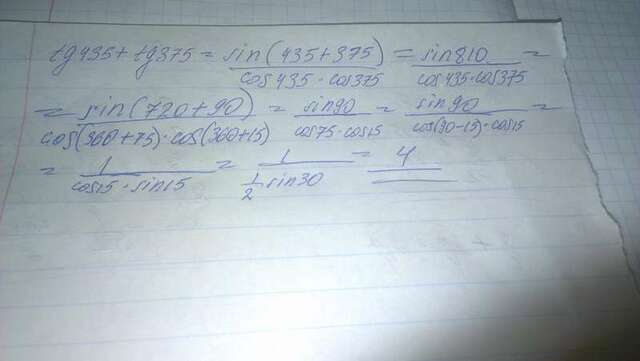 tg435 + tg375 = sin(435+375) / cos435·cos375 = sin810 / cos435·cos375 =
= sin(720+90) / cos(360+75)·cos(360+15) = sin90 / cos75·cos15 = sin90 / cos(90-15)·cos15 =
= 1 / cos15·sin15 = 1 / 1/2 sin30 = 4